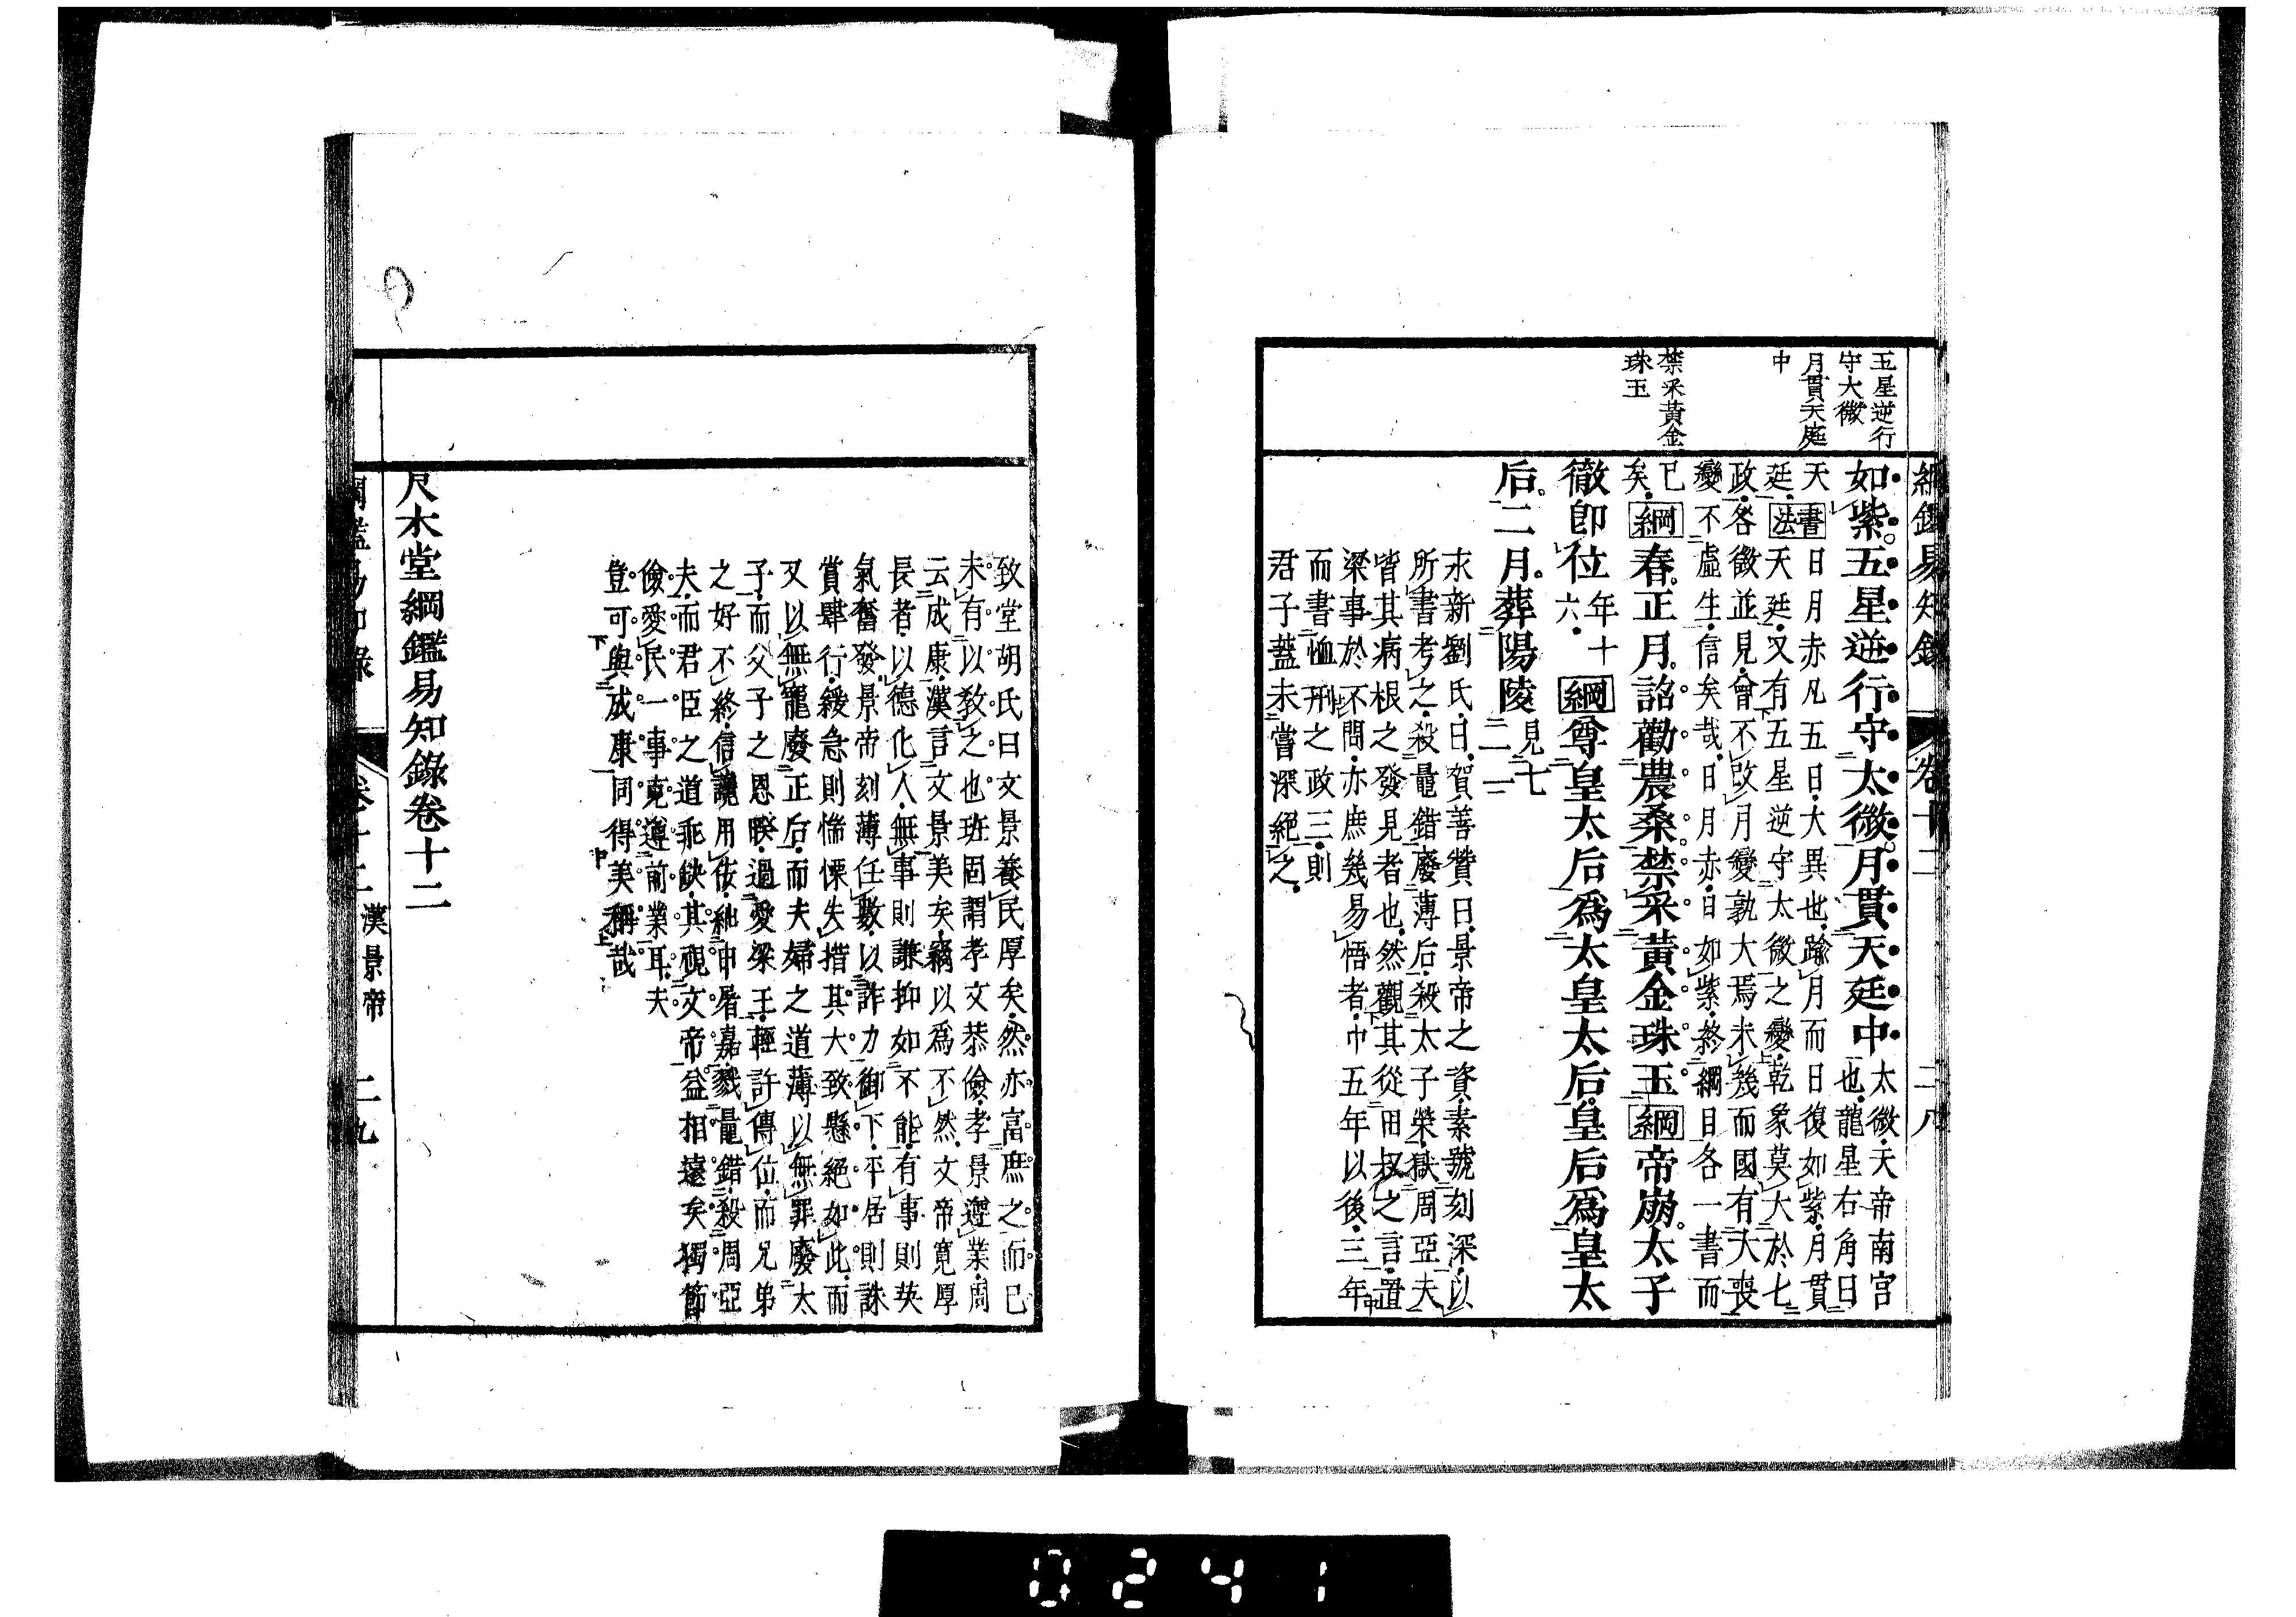 綱鑑易知錄
卷十二
二八
五星逆行
守大微
月貫天庭
中
禁采黃金
珠玉
如紫五星逆行守太微月貫天廷中
太微天帝南宮
也龍星右角曰
天
書法
日月赤凡五日大異也踰月而日復如紫月貫
廷
天廷又有五星逆守太微之變乾象莫大於七
政各徵並見會不改月變孰大焉未幾而國有大喪
變不虛生信矣哉日月赤日如紫終綱目各一書而
已
矣
綱春正月詔勸農桑禁采黃金珠玉綱帝崩太子
徹卽位
年十
六
綱尊皇太后爲太皇太后皇后爲皇太
后二月葬陽陵
見七
二二
求新劉氏曰賀善贊曰景帝之資素號刻深以
所書考之殺鼂錯廢薄后殺太子榮獄周亞夫
皆其病根之發見者也然觀其從田叔之言置
梁事於不問亦庶幾易悟者中五年以後三年
而書恤刑之政三則
君子蓋未嘗深絕之
致堂胡氏曰文景養民厚矣然亦富庶之而已
未有以敎之也班固謂孝文恭儉孝景遵業周
云成康漢言文景美矣竊以爲不然文帝寬厚
長者以德化人無事則謙抑如不能有事則英
氣奮發景帝刻薄任數以詐力御下平居則誅
賞肆行緩急則惴慄失措其大致懸絕如此而
又以無寵廢正后而夫婦之道薄以無罪廢太
子而父子之恩睽過愛梁王輕許傳位而兄弟
之好不終信讒用佞絀申屠嘉戮鼂錯殺周亞
夫而君臣之道乖缺其視文帝益相遠矣獨節
儉愛民一事克遵前業耳夫
豈可與成康同得美稱哉
尺木堂綱鑑易知錄卷十二
綱鑑易知錄
卷十二
漢景帝
二九
0241